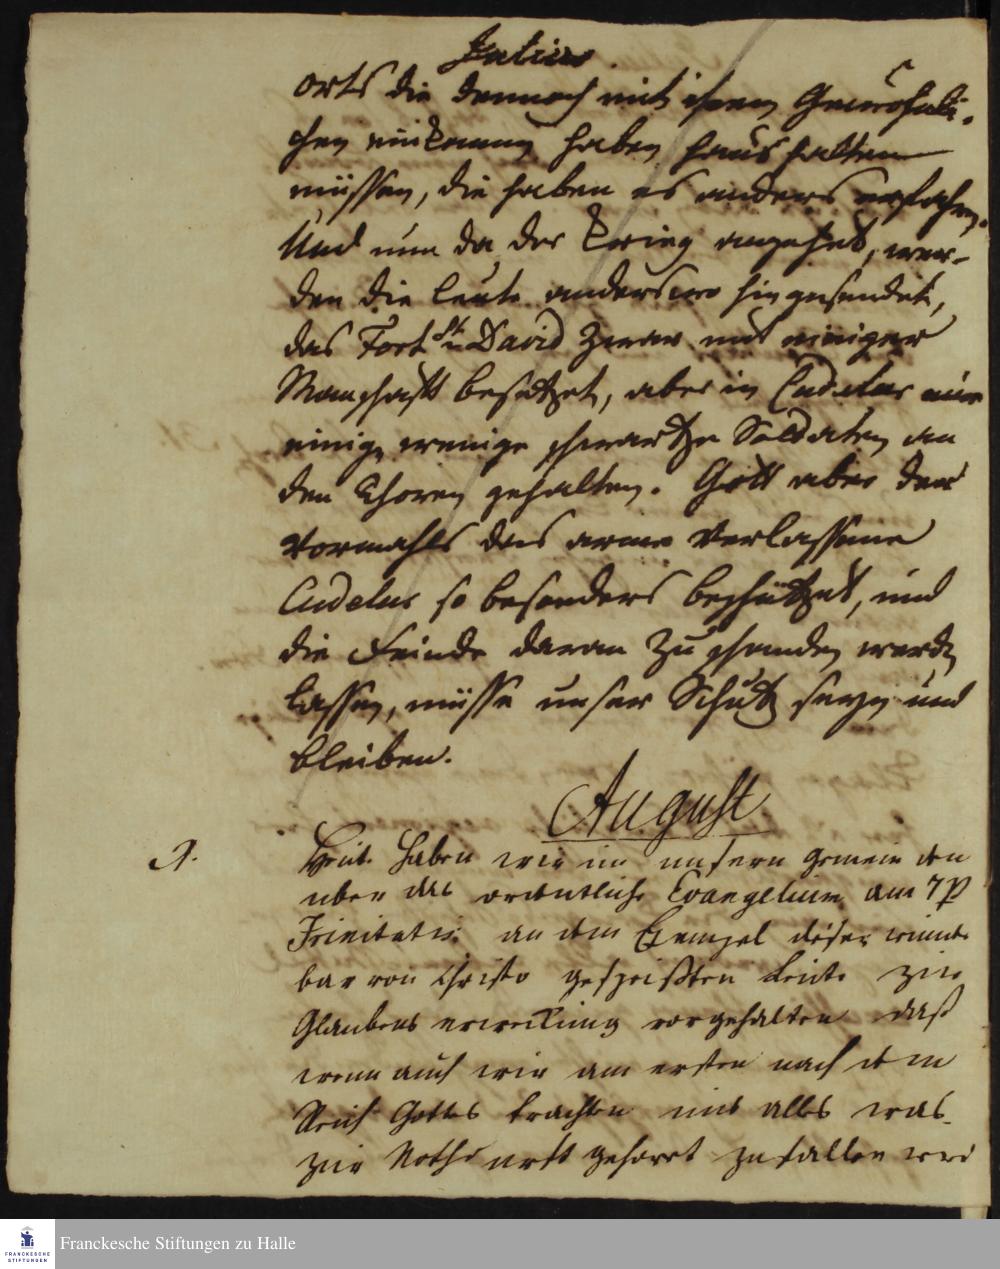 Julius
orts die dennoch mit ihrem Gewöhnli-
chen einkommen haben haushalten
müssen, die haben es anders erfahren.
Und nun da der Krieg angehet, wer-
den die Leute anderswo hingesendet,
das Fort St. David zwar mit einiger
Mannschafft besetzet, aber in Cudelur nur
einige wenige schwartze Soldaten an
den Thoren gehalten. Gott aber der
vormahls das arme verlassene
Cudelur so besonders beschützet, und
die Feinde daran zu schanden werden
lassen, müsse unser Schutz seyn und
bleiben.
August
1. Heute haben wir in unsern Gemeinden
über das ordentliche Evangelium am 7 p
Trinitatis an dem Exempel dieser wunder-
bar von Christo gespeißten Leute zur
Glaubens erweckung vorgehalten daß
wenn auch wir am ersten nach dem
Reich Gottes trachten uns alles was
zur Nothdurfft gehöret zufallen
Franckesche Stiftungen zu Halle
FRANCKESCHE
STIFTUNGEN